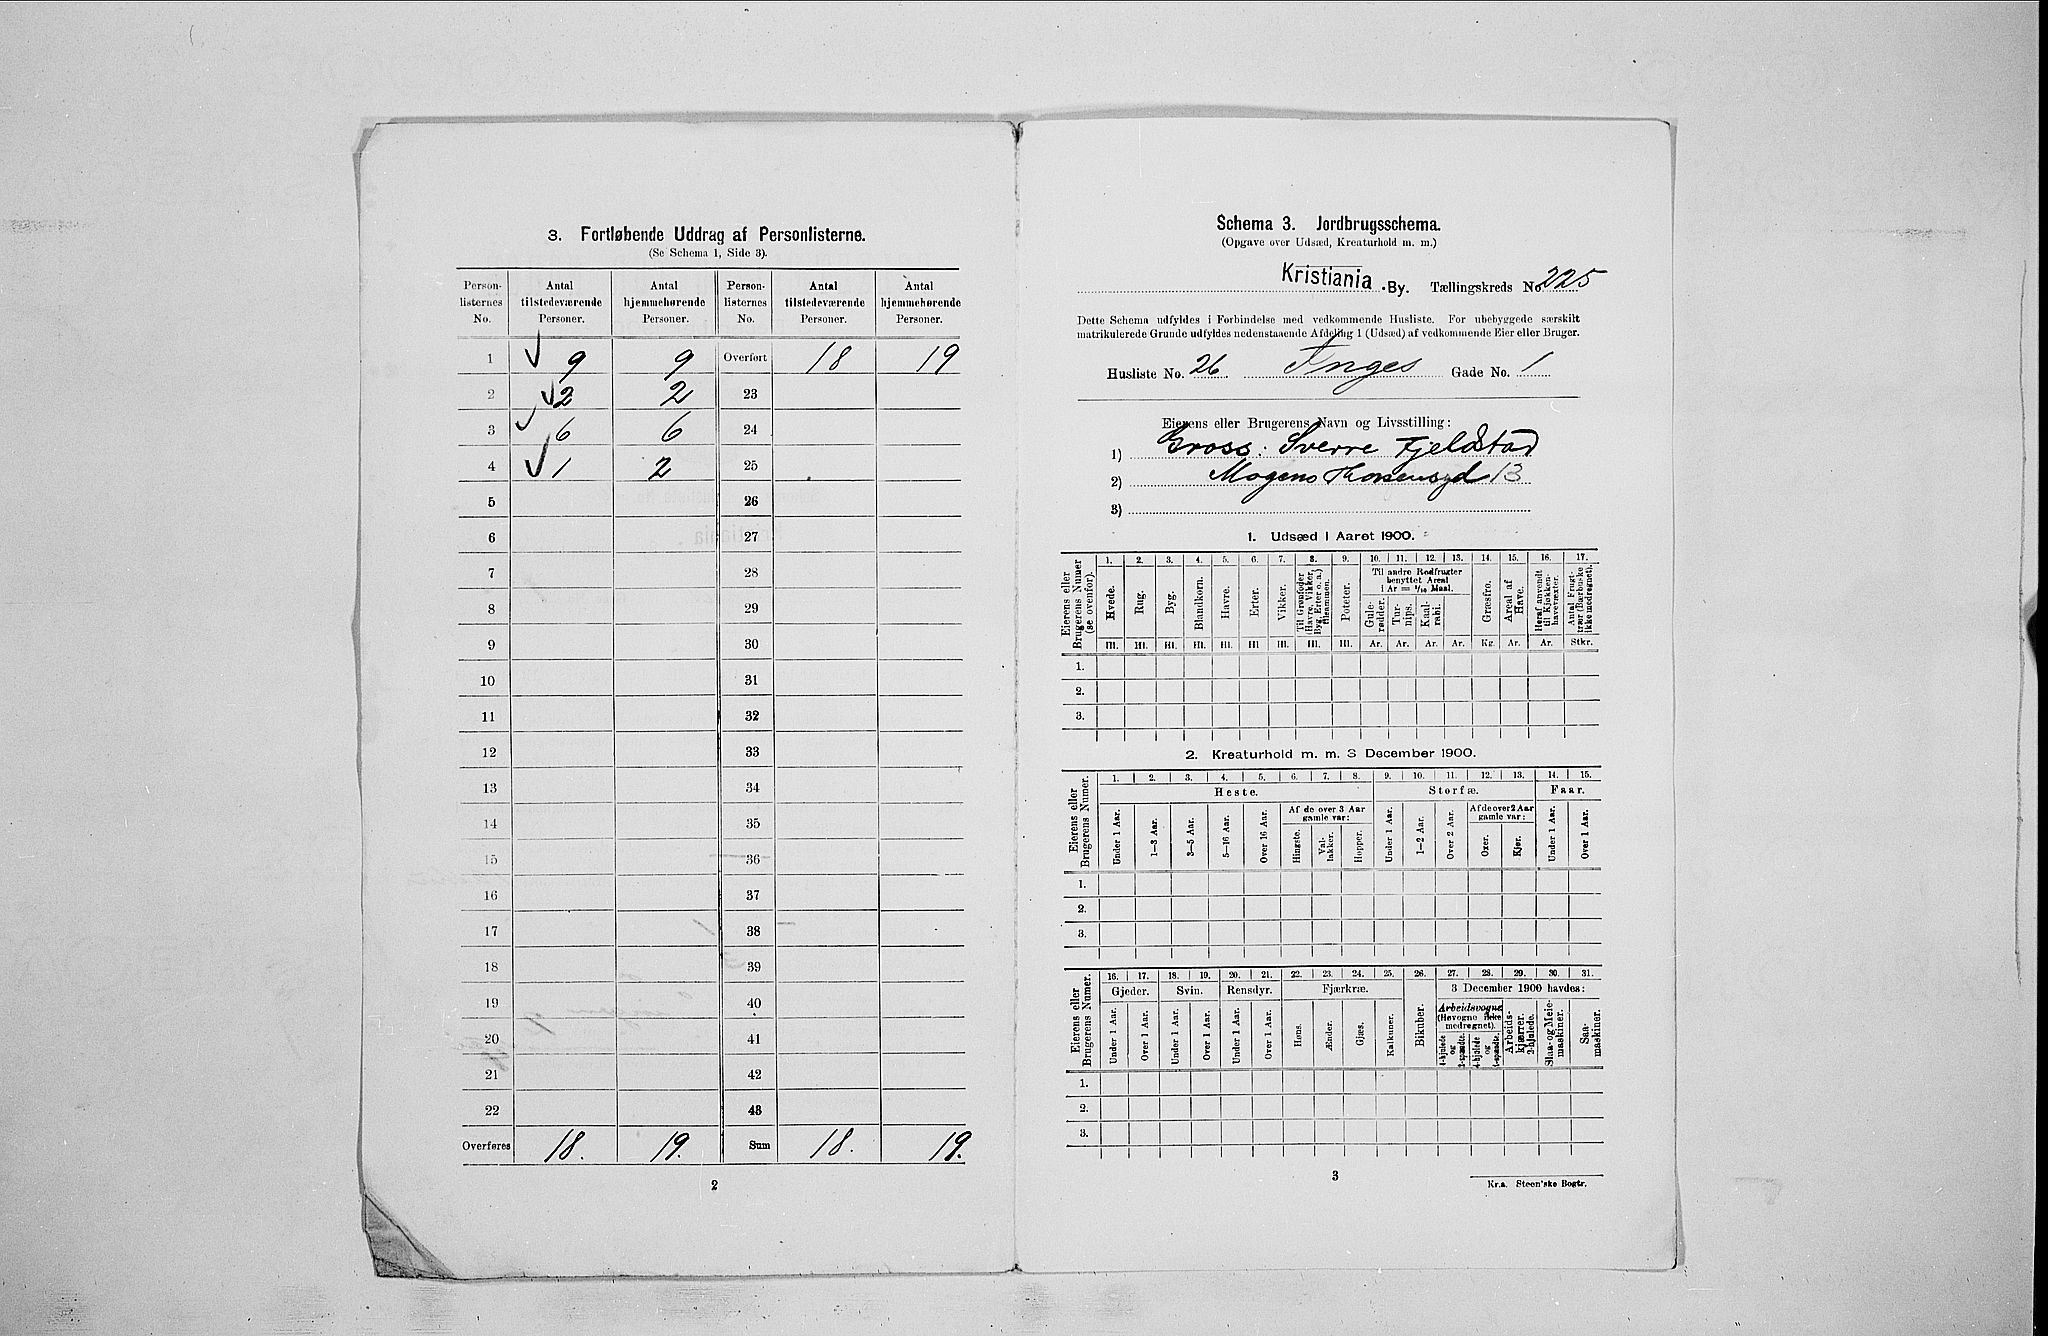 3. Fortløbende Uddrag af Personlisterne.
(Se Schema 1, Side 3).
Person-listernes No. | Antal tilstedeværende Personer. | Antal hjemmehørende Personer. | Person-listernes No. | Antal tilstedeværende Personer. | Antal hjemmehørende Personer.
1 | 9 | 9 | Overført | 18 | 19
2 | 2 | 2 | 23
3 | 6 | 6 | 24
4 | 1 | 2 | 25
5 | 26
6 | 27
7 | 28
8 | 29
9 | 30
10 | 31
11 | 32
12 | 33
13 | 34
14 | 35
15 | 36
16 | 37
17 | 38
18 | 39
19 | 40
20 | 41
21 | 42
22 | 43
Overføres | 18. | 19. | Sum | 18. | 19.
2
Schema 3. Jordbrugsschema.
(Opgave over Udsæd, Kreaturhold m. m.)
Kristiania By. Tællingskreds No 225
Dette Schema udfyldes i Forbindelse med vedkommende Husliste. For ubebyggede særskilt
matrikulerede Grunde udfyldes nedenstaaende Afdeling 1 (Udsæd) af vedkommende Eier eller Bruger.
Husliste No. 26 Inges Gade No. 1
Eierens eller Brugerens Navn og Livsstilling:
1) Gross: Sverre Fjeldstad
2) Mogens
3)
1. Udsæd i Aaret 1900.
Eierens eller Brugerens Numer (se ovenfor). | 1. | 2. | 3. | 4. | 5. | 6. | 7. | 8. | 9. | 10. | 11. | 12. | 13. | 14. | 15. | 16. | 17.
Til andre Rodfrugter benyttet Areal i Ar = 1/10 Maal.
Hvede. | Rug. | Byg. | Blandkorn. | Havre. | Erter. | Vikker. | Til Grønfoder (Havre, Vikker, Byg, Erter o. a.) tilsammen. | Poteter. | Gulerødder. | Turnips. | Kaalrabi. | Græsfrø. | Areal af Have. | Heraf anvendt til Kjøkkenhavevæxter. | Antal Frugttrær (Bærbuske ikke medregnet).
Hl. | Hl. | Hl. | Hl. | Hl. | Hl | Hl. | Hl. | Hl. | Ar. | Ar. | Ar. | Ar. | Kg. | Ar. | Ar. | Stkr.
1.
2.
3.
2. Kreaturhold m. m. 3 December 1900.
Eierens eller Brugerens Numer. | 1. | 2. | 3. | 4. | 5. | 6. | 7. | 8. | 9. | 10. | 11. | 12. | 13. | 14. | 15.
Heste. | Storfæ. | Faar.
Af de over 3 Aar gamle var: | Af de over 2 Aar gamle var:
Under 1 Aar. | 1—3 Aar. | 3—5 Aar. | 5—16 Aar. | Over 16 Aar. | Hingste. | Vallakker. | Hopper. | Under 1 Aar. | 1—2 Aar. | Over 2 Aar. | Oxer. | Kjør. | Under 1 Aar. | Over 1 Aar.
1.
2.
3.
Eierens eller Brugerens Numer. | 16. | 17. | 18. | 19. | 20. | 21. | 22. | 23. | 24. | 25. | 26. | 27. | 28. | 29. | 30. | 31.
Gjeder. | Svin. | Rensdyr. | Fjærkræ. | Bikuber. | 3 December 1900 havdes:
Arbeidsvogne (Høvogne ikke medregnet).
Under 1 Aar. | Over 1 Aar. | Under 1 Aar. | Over 1 Aar. | Under 1 Aar. | Over 1 Aar. | Høns. | Ænder. | Gjæs. | Kalkuner. | 4-hjulede og 2-spændte. | 4-hjulede og 1-spændte. | Arbeidskjærrer. 2-hjulede. | Slaa- og Meiemaskiner. | Saamaskiner.
1.
2.
3.
3
Kr.a. Steen'ske Bogtr.